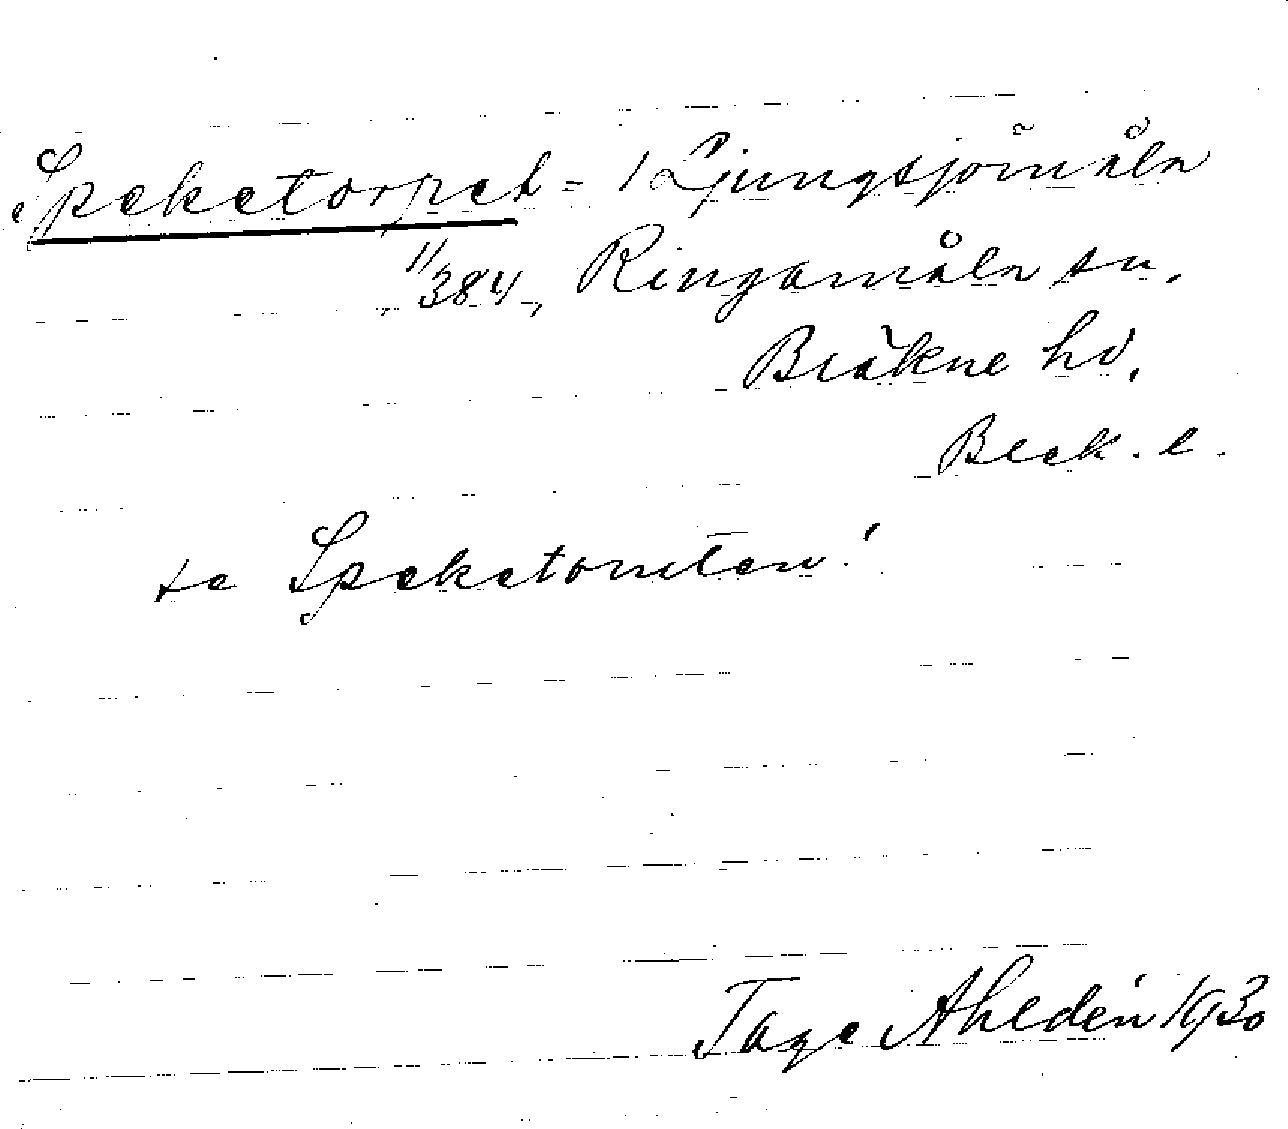 Speketorpet - 1 Ljungsjömåla
11/384, Ringamåla sn.
Bräkne hd.
Blek. l.
se Speketomten!
Tage Ahldén 1930